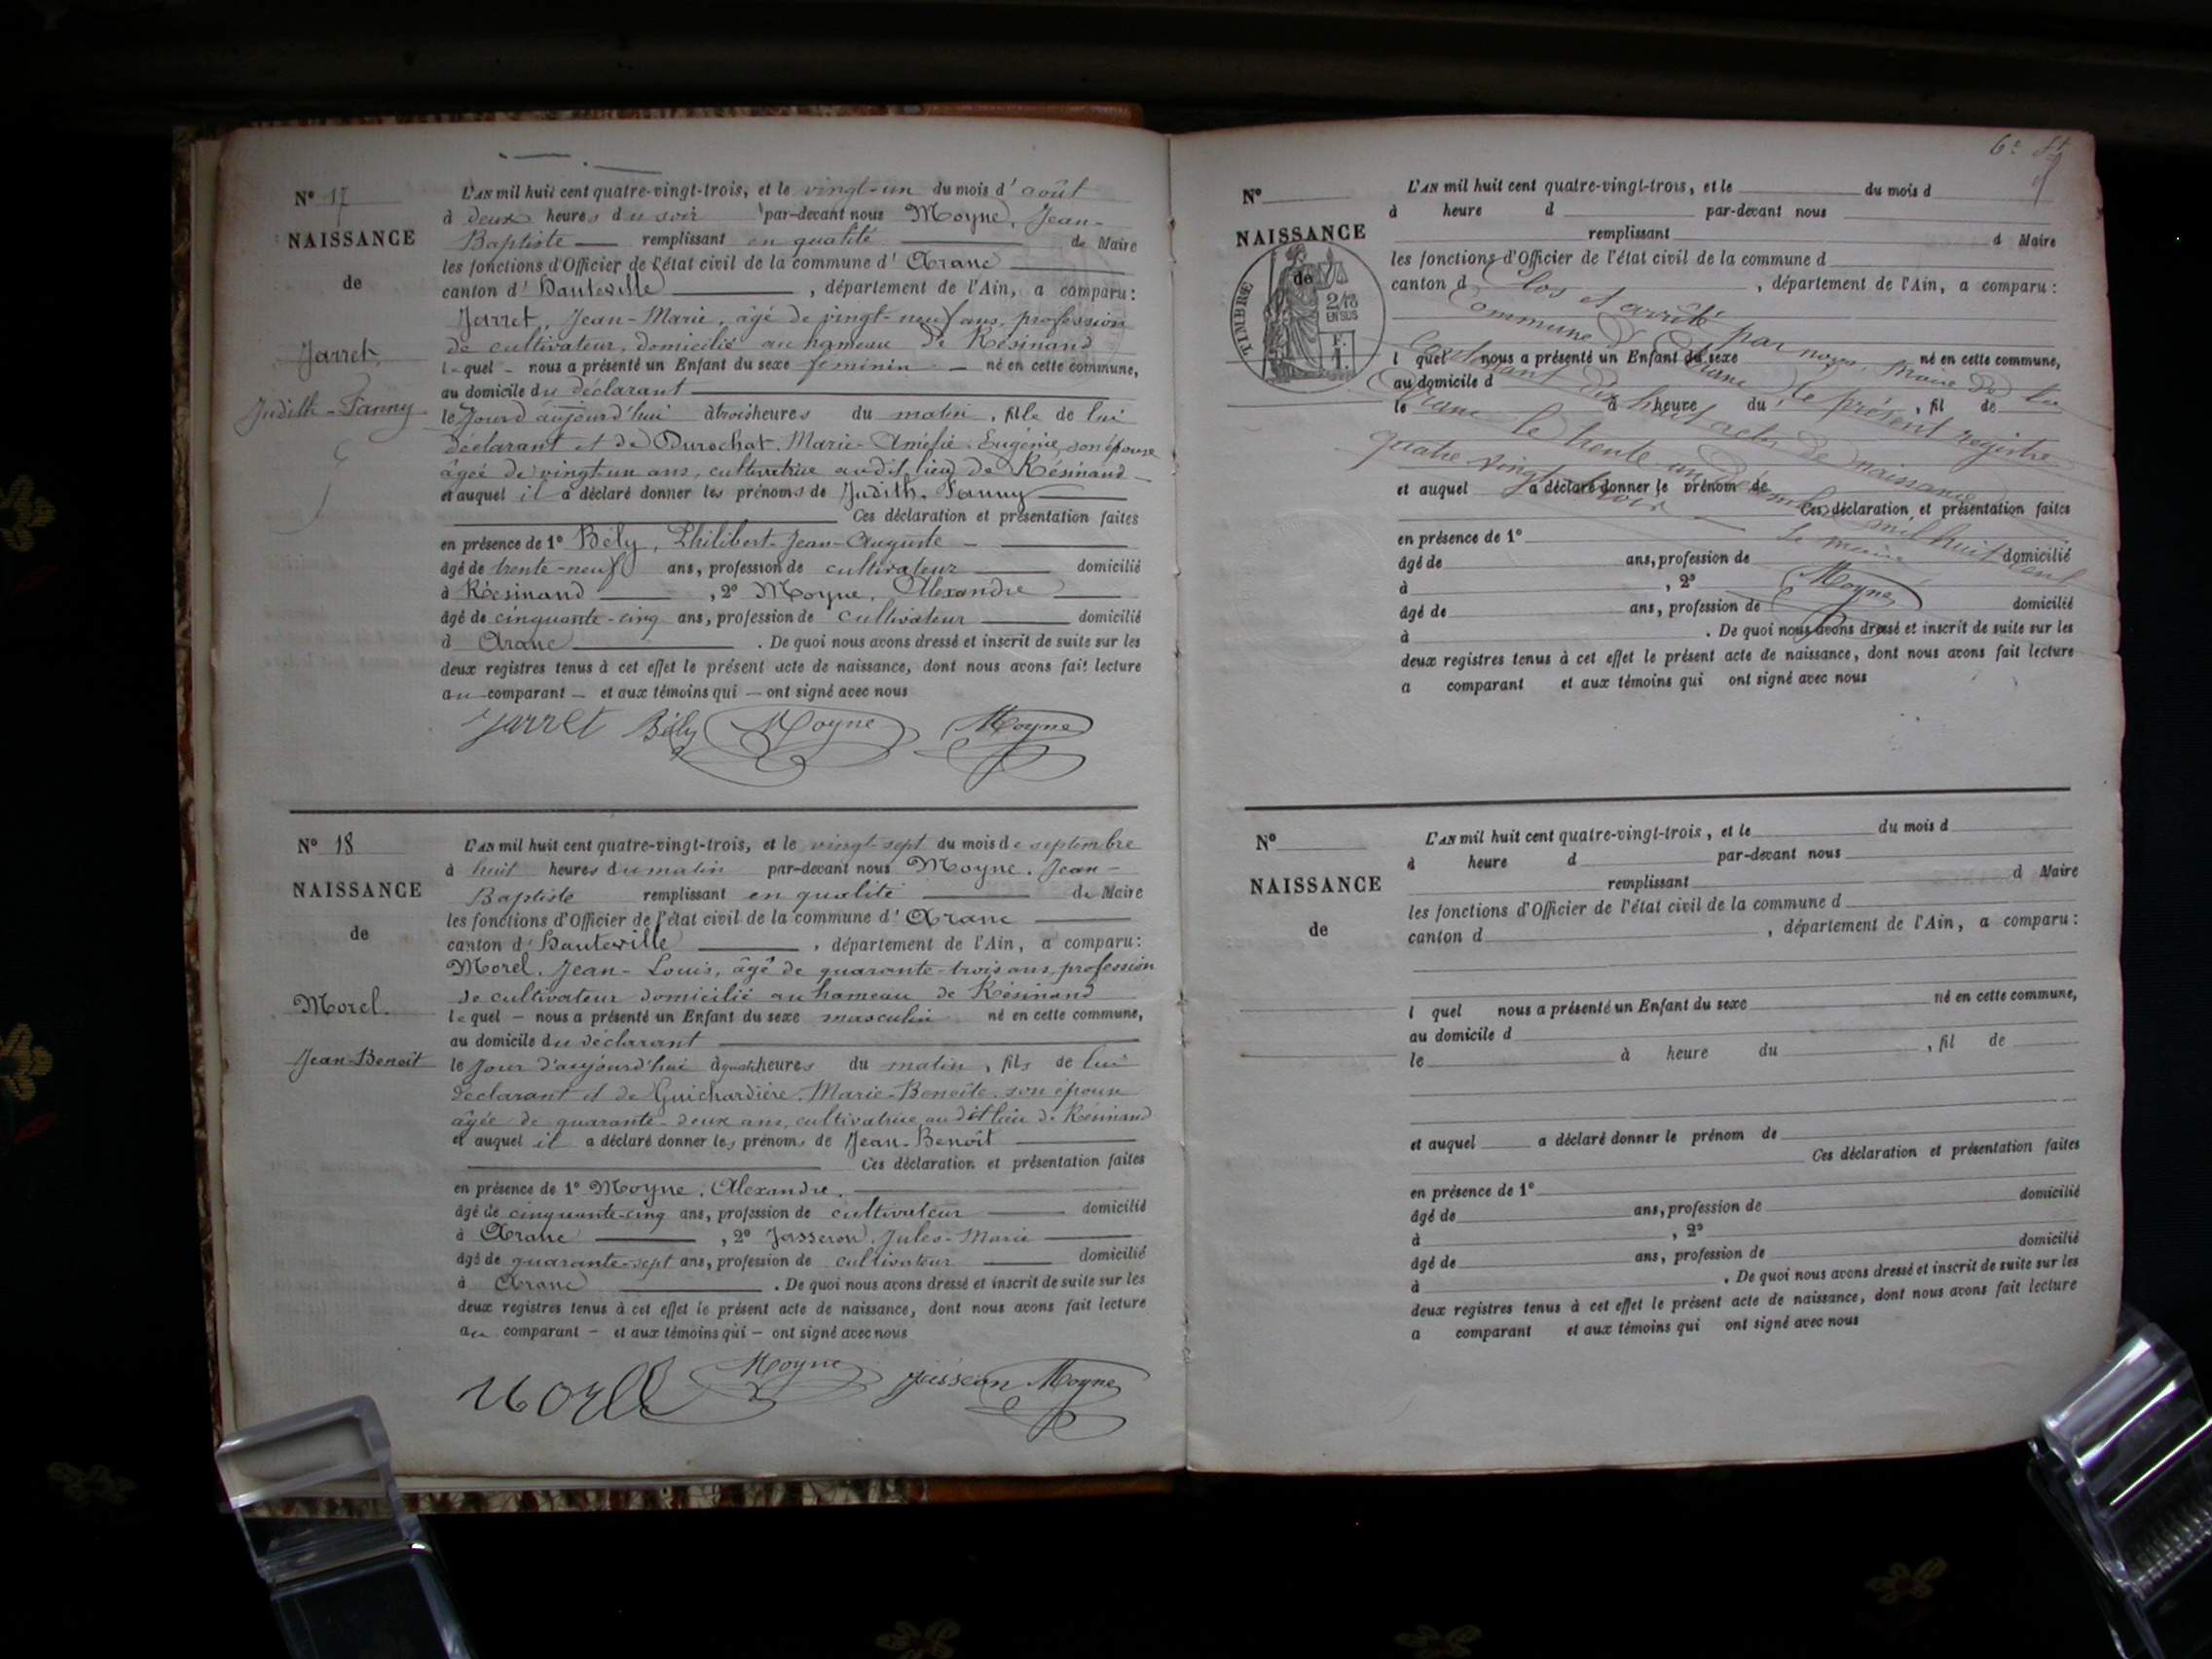 N° 17
NAISSANCE
de
Jarret
Judith-Fanny
L'AN mil huit cent quatre-vingt-trois, et le vingt-un du mois d'août
à deux heures du soir par-devant nous Moyne, Jean-
Baptiste remplissant en qualité de Maire
les fonctions d'Officier de l'état civil de la commune d'Aranc
canton d'Hauteville, département de l'Ain, a comparu:
Jarret, Jean-Marie, âgé de vingt-neuf ans, profession
de cultivateur, domicilié au hameau de Résinand
lequel - nous a présenté un Enfant du sexe féminin - né en cette commune,
au domicile du déclarant
le jour d'aujourd'hui à trois heures du matin, fille de lui
déclarant et de Durochat, Marie-Amélie-Eugénie, son épouse
âgée de vingt-un ans, cultivatrice audit lieu de Résinand -
et auquel il a déclaré donner les prénoms de Judith-Fanny
Ces déclaration et présentation faites
en présence de 1° Bély, Philibert-Jean-Auguste -
âgé de trente-neuf ans, profession de cultivateur domicilié
à Résinand, 2° Moyne, Alexandre
âgé de cinquante-cinq ans, profession de cultivateur domicilié
à Aranc. De quoi nous avons dressé et inscrit de suite sur les
deux registres tenus à cet effet le présent acte de naissance, dont nous avons fait lecture
au comparant - et aux témoins qui - ont signé avec nous
Jarret Bély Moyne Moyne
N° 18
NAISSANCE
de
Morel.
Jean-Benoît
L'AN mil huit cent quatre-vingt-trois, et le vingt-sept du mois de septembre
à huit heures du matin par-devant nous Moyne, Jean-
Baptiste remplissant en qualité de Maire
les fonctions d'Officier de l'état civil de la commune d'Aranc
canton d'Hauteville, département de l'Ain, a comparu:
Morel, Jean-Louis, âgé de quarante-trois ans, profession
de cultivateur domicilié au hameau de Résinand
lequel - nous a présenté un Enfant du sexe masculin né en cette commune,
au domicile du déclarant
le jour d'aujourd'hui à quatre heures du matin, fils de lui
déclarant et de Guichardière, Marie-Benoîte, son épouse
âgée de quarante-deux ans, cultivatrice, audit lieu de Résinand
et auquel il a déclaré donner les prénoms de Jean-Benoît
Ces déclaration et présentation faites
en présence de 1° Moyne, Alexandre,
âgé de cinquante-cinq ans, profession de cultivateur domicilié
à Aranc, 2° Jasseron, Jules-Marie
âgé de quarante-sept ans, profession de cultivateur domicilié
à Aranc. De quoi nous avons dressé et inscrit de suite sur les
deux registres tenus à cet effet le présent acte de naissance, dont nous avons fait lecture
au comparant - et aux témoins qui - ont signé avec nous
Morel Moyne Moyne
N°
NAISSANCE
de
TIMBRE
2/10
EN SUS
F.
1.
L'AN mil huit cent quatre-vingt-trois, et le du mois d
à heure d par-devant nous
remplissant d Maire
les fonctions d'Officier de l'état civil de la commune d
canton d, département de l'Ain, a comparu:
l quel nous a présenté un Enfant du sexe né en cette commune,
au domicile d
le à heure du, fil de
et auquel a déclaré donner le prénom de
Ces déclaration et présentation faites
en présence de 1°
âgé de ans, profession de domicilié
à, 2°
âgé de ans, profession de domicilié
à. De quoi nous avons dressé et inscrit de suite sur les
deux registres tenus à cet effet le présent acte de naissance, dont nous avons fait lecture
a comparant et aux témoins qui ont signé avec nous
Clos et arrêté par nous, Maire de la
Commune d'Aranc, le présent registre
contenant dix huit actes de naissance
Aranc le trente un décembre mil huit cent
quatre vingt trois
Le maire
Moyne
N°
NAISSANCE
de
L'AN mil huit cent quatre-vingt-trois, et le du mois d
à heure d par-devant nous
remplissant d Maire
les fonctions d'Officier de l'état civil de la commune d
canton d, département de l'Ain, a comparu:
l quel nous a présenté un Enfant du sexe né en cette commune,
au domicile d
le à heure du, fil de
et auquel a déclaré donner le prénom de
Ces déclaration et présentation faites
en présence de 1°
âgé de ans, profession de domicilié
à, 2°
âgé de ans, profession de domicilié
à. De quoi nous avons dressé et inscrit de suite sur les
deux registres tenus à cet effet le présent acte de naissance, dont nous avons fait lecture
a comparant et aux témoins qui ont signé avec nous